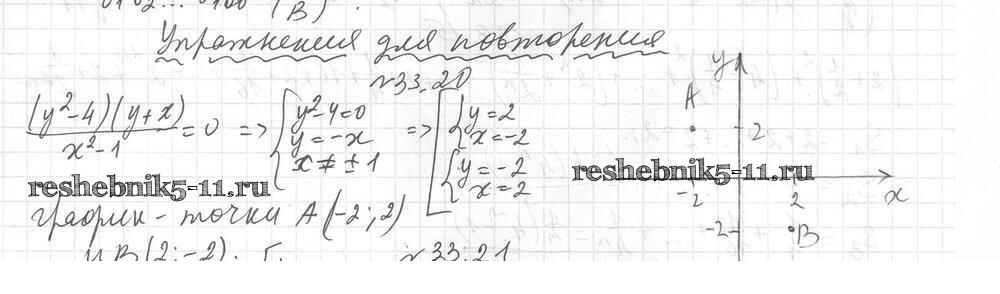 (В)
Упражнения для повторения
№33.20
(y²-4)(y+x)/x²-1 = 0 => { y²-4=0 y=-x x≠±1 => [ { y=2 x=-2 { y=-2 x=2
reshebnik5-11.ru
график - точки А(-2; 2)
и В(2; -2).
№33.21
y
A
2
reshebnik5-11.ru
-2
2
x
-2
B